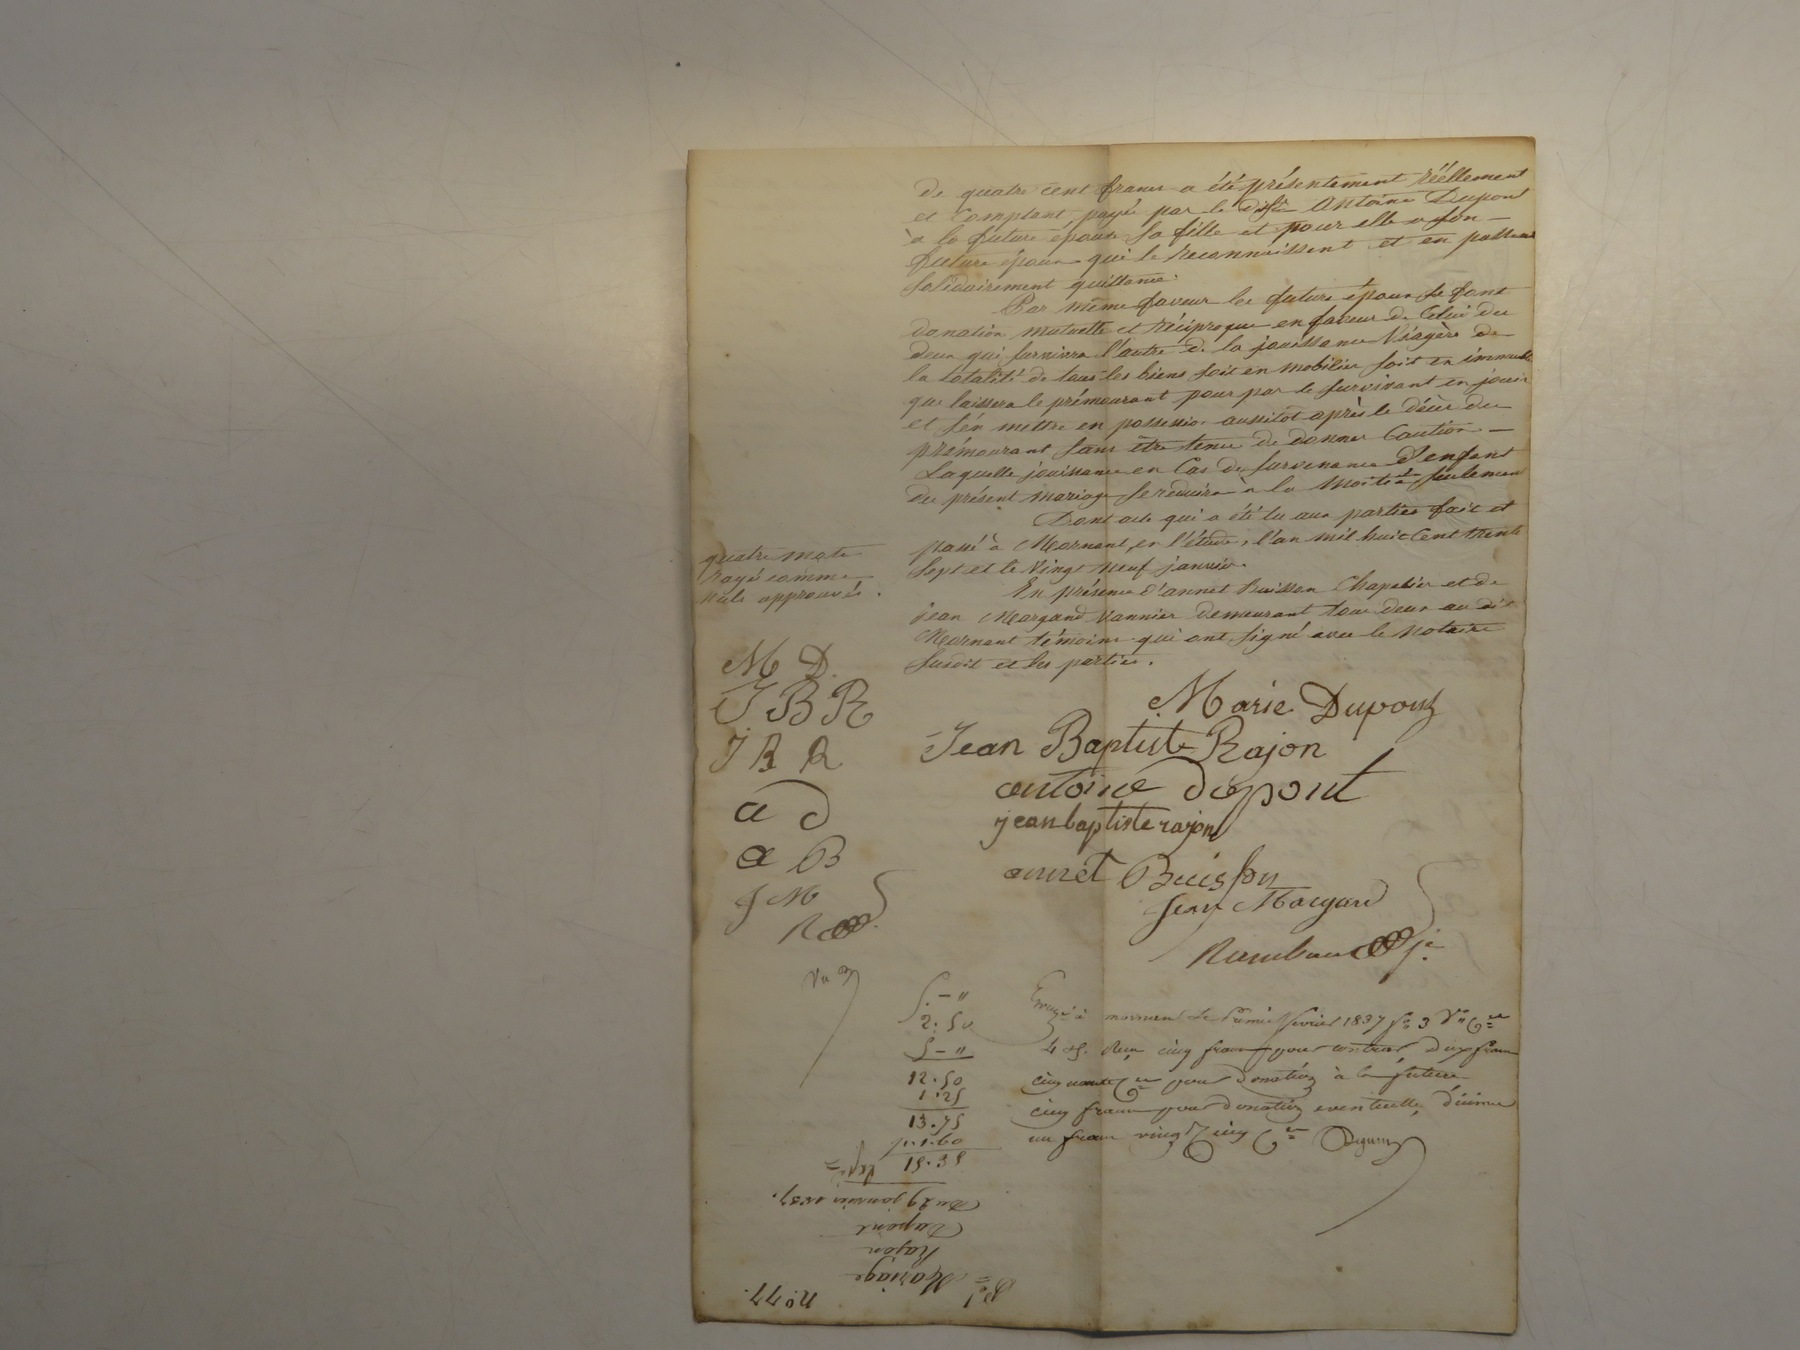 de quatre cent francs a été présentement réèllement
et Comptant payé par le dit Sr Antoine Dupont
à la future épouse sa fille et pour elle a son —
futur époux qui le reconnaissent et en passent
solidairement quittance.
Par même faveur les futurs époux se font
donation mutuelle et réciproque en faveur de Celui des
deux qui survivra l'autre de la jouissance Viagère de
la totalité de tous les biens soit en mobilier soit en immeuble
que laissera le prémourant pour par le survivant en jouir
et s'en mettre en possession aussitot après le décès du
prémourant sans être tenu de donner Caution —
Laquelle jouissance en Cas de survenance d'enfant
du présent mariage se réduira à la Moitié seulement
Dont acte qui a été lu aux parties fait et
passé à Mornant, en l'étude, l'an mil huit Cent trente
sept et le Vingt neuf janvier.
En présence d'annet Buisson Chapelier et de
jean Morgand Vannier demeurant tous deux au dit
Mornant témoins qui ont signé avec le Notaire
susdit et les parties.
quatre mots
rayé comme
nuls approuvés.
M D.
J B R
J B R
a d
a B
J M
R
Marie Dupont
Jean Baptiste Rajon
antoine dupont
jean baptiste rajon
annet Buisson
Jean Morgand
Rambaud je
Vu
5. — "
2. 50
5 — "
12. 50
1. 25
13. 75
1. 60
15. 35
à mornant Le Premier février 1837 fo 3 Vo Ce
4 et 5. Reçu cinq francs pour contrat, deux francs
cinquante Ces pour donation à la future
cinq francs pour donation eventuelle, décime
un franc vingt cinq Ces
no. 77.
Mariage
Rajon
Dupont
Du 29 janvier 1837.